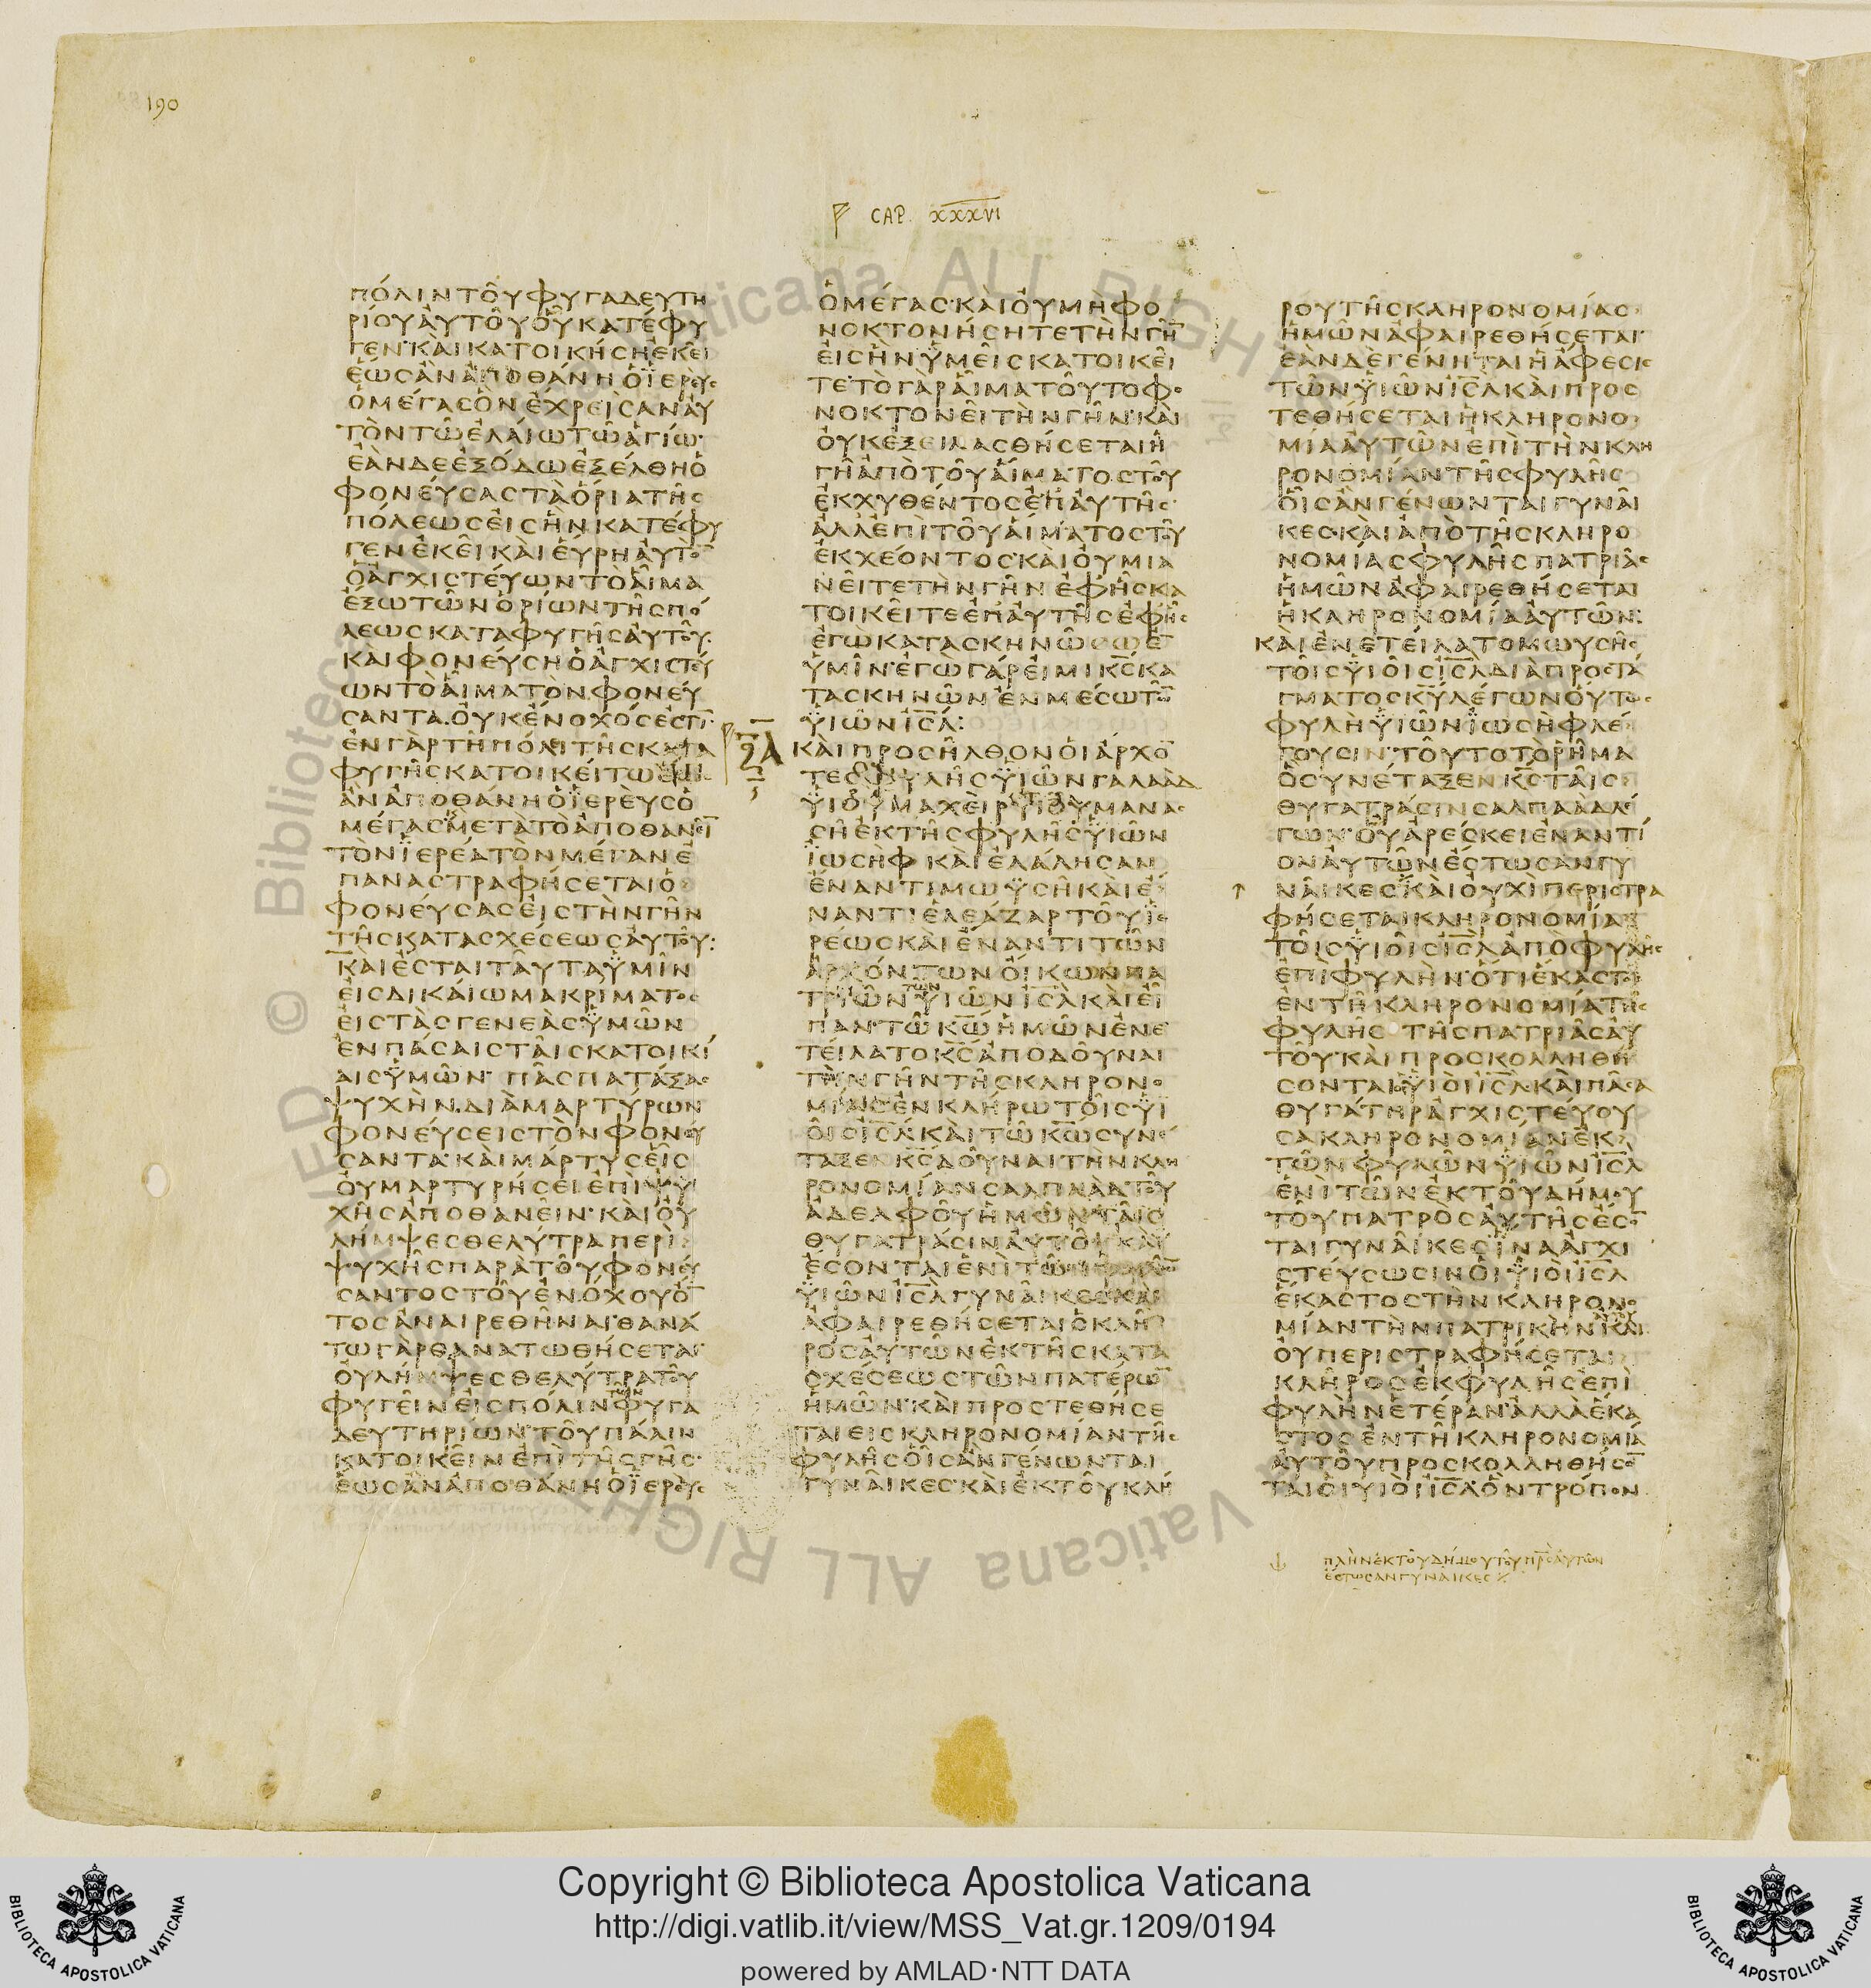 190
CAP. XXXVI
πόλιν τοῦ φυγαδευτη
ρίου αὐτοῦ οὗ κατέφυ
γεν· καὶ κατοικήσῃ ἐκεῖ
ἕως ἂν ἀποθάνῃ ὁ ἱερεὺς
ὁ μέγας ὃν ἔχρεισαν αὐ
τὸν τῷ ἐλαίῳ τῷ ἁγίῳ·
ἐὰν δὲ ἐξόδῳ ἐξέλθῃ ὁ
φονεύσας τὰ ὅρια τῆς
πόλεως εἰς ἣν κατέφυ
γεν ἐκεῖ καὶ εὕρῃ αὐτὸ̅
ὁ ἀγχιστεύων τὸ αἷμα
ἔξω τῶν ὁρίων τῆς πό
λεως καταφυγῆς αὐτοῦ·
καὶ φονεύσῃ ὁ ἀγχιστεύ
ων τὸ αἷμα τὸν φονεύ
σαντα· οὐκ ἔνοχός ἐστι̅·
ἐν γὰρ τῇ πόλι τῆς κατα
φυγῆς κατοικείτω ἕως
ἂν ἀποθάνῃ ὁ ἱερεὺς ὁ
μέγας· μετὰ τὸ ἀποθανεῖ̅
τὸν ἱερέα τὸν μέγαν ἐ
παναστραφήσεται ὁ
φονεύσας εἰς τὴν γῆν
τῆς κατασχέσεως αὐτοῦ:
καὶ ἔσται ταῦτα ὑμῖν
εἰς δικαίωμα κρίματος
εἰς τὰς γενεὰς ὑμῶν
ἐν πάσαις ταῖς κατοικί
αις ὑμῶν· πᾶς πατάξας
ψυχὴν διὰ μαρτύρων
φονεύσεις τὸν φονεύ
σαντα· καὶ μάρτυς εἷς
οὐ μαρτυρήσει ἐπὶ ψυ
χῆς ἀποθανεῖν· καὶ οὐ
λήμψεσθε λύτρα περὶ
ψυχῆς παρὰ τοῦ φονεύ
σαντος τοῦ ἐνόχου ὄ̅
τος ἀναιρεθῆναι· θανά
τῳ γὰρ θανατωθήσεται·
οὐ λήμψεσθε λύτρα τοῦ
φυγεῖν εἰς πόλιν τῶν φυγα
δευτηρίων· τοῦ πάλιν
κατοικεῖν ἐπὶ τῆς γῆς·
ἕως ἂν ἀποθάνῃ ὁ ἱερεὺς
ὁ μέγας· καὶ οὐ μὴ φο
νοκτονήσητε τὴν γῆ̅
εἰς ἣν ὑμεῖς κατοικεῖ
τε· τὸ γὰρ αἷμα τοῦτο φο
νοκτονεῖ τὴν γῆν· καὶ
οὐκ ἐξειλασθήσεται ἡ
γῆ ἀπὸ τοῦ αἵματος τοῦ
ἐκχυθέντος ἐπ' αὐτῆς·
ἀλλ' ἐπὶ τοῦ αἵματος τοῦ
ἐκχέοντος· καὶ οὐ μια
νεῖτε τὴν γῆν ἐφ' ἧς κα
τοικεῖτε ἐπ' αὐτῆς ἐφ' ἧς
ἐγὼ κατασκηνώσω ἐ̅
ὑμῖν· ἐγὼ γάρ εἰμι κ̅ς̅ κα
τασκηνῶν ἐν μέσῳ τῶ̅
υἱῶν ι̅σ̅λ̅:
Καὶ προσῆλθον οἱ ἄρχο̅
τες φυλῆς υἱῶν Γαλαὰδ
υἱοῦ Μαχεὶρ υἱοῦ Μανασ
σῆ ἐκ τῆς φυλῆς υἱῶν
Ἰωσὴφ καὶ ἐλάλησαν
ἔναντι Μωυσῆ καὶ ἔ
ναντι Ἐλεάζαρ τοῦ ἱε
ρέως καὶ ἔναντι τῶν
ἀρχόντων οἴκων πα
τριῶν τῶν υἱῶν ι̅σ̅λ̅ καὶ εἶ
παν· τῷ κ̅ω̅ ἡμῶν ἐνε
τείλατο κ̅ς̅ ἀποδοῦναι
τὴν γῆν τῆς κληρονο
μίας ἐν κλήρῳ τοῖς υἱ
οῖς ι̅σ̅λ̅· καὶ τῷ κ̅ω̅ συνέ
ταξεν κ̅ς̅ δοῦναι τὴν κλη
ρονομίαν Σαλπαὰδ τοῦ
ἀδελφοῦ ἡμῶν ταῖς
θυγατράσιν αὐτοῦ· καὶ
ἔσονται ἑνὶ τῶν φυλῶ̅
υἱῶν ι̅σ̅λ̅ γυναῖκες καὶ
ἀφαιρεθήσεται ὁ κλῆ
ρος αὐτῶν ἐκ τῆς κατα
σχέσεως τῶν πατέρω̅
ἡμῶν· καὶ προστεθήσε
ται εἰς κληρονομίαν τῆς
φυλῆς οἷς ἂν γένωνται
γυναῖκες· καὶ ἐκ τοῦ κλή
ρου τῆς κληρονομίας
ἡμῶν ἀφαιρεθήσεται·
ἐὰν δὲ γένηται ἡ ἄφεσις
τῶν υἱῶν ι̅σ̅λ̅ καὶ προσ
τεθήσεται ἡ κληρονο
μία αὐτῶν ἐπὶ τὴν κλη
ρονομίαν τῆς φυλῆς
οἷς ἂν γένωνται γυναῖ
κες· καὶ ἀπὸ τῆς κληρο
νομίας φυλῆς πατριᾶς
ἡμῶν ἀφαιρεθήσεται
ἡ κληρονομία αὐτῶν:
καὶ ἐνετείλατο Μωυσῆς
τοῖς υἱοῖς ι̅σ̅λ̅ διὰ προστά
γματος κ̅υ̅ λέγων οὕτως
φυλὴ υἱῶν Ἰωσὴφ λέ
γουσιν· τοῦτο τὸ ῥῆμα
ὃ συνέταξεν κ̅ς̅ ταῖς
θυγατράσιν Σαλπαὰδ λέ
γων· οὗ ἀρέσκει ἐναντί
ον αὐτῶν ἔστωσαν γυ
ναῖκες· καὶ οὐχὶ περιστρα
φήσεται κληρονομία
τοῖς υἱοῖς ι̅σ̅λ̅ ἀπὸ φυλῆς
ἐπὶ φυλήν· ὅτι ἕκαστος
ἐν τῇ κληρονομίᾳ τῆς
φυλῆς τῆς πατριᾶς αὐ
τοῦ· καὶ προσκολληθή
σονται οἱ υἱοὶ ι̅σ̅λ̅· καὶ πᾶσα
θυγάτηρ ἀγχιστεύου
σα κληρονομίαν ἐκ
τῶν φυλῶν υἱῶν ι̅σ̅λ̅
ἑνὶ τῶν ἐκ τοῦ δήμου
τοῦ πατρὸς αὐτῆς ἔσο̅
ται γυναῖκες ἵνα ἀγχι
στεύσωσιν οἱ υἱοὶ ι̅σ̅λ̅
ἕκαστος τὴν κληρονο
μίαν τὴν πατρικὴν αὐτοῦ καὶ
οὐ περιστραφήσεται
κλῆρος ἐκ φυλῆς ἐπὶ
φυλὴν ἑτέραν· ἀλλὰ ἕκα
στος ἐν τῇ κληρονομίᾳ
αὐτοῦ προσκολληθήσο̅
ται οἱ υἱοὶ ι̅σ̅λ̅· ὃν τρόπον
πλὴν ἐκ τοῦ δήμου τοῦ π̅ρ̅ο̅ς̅ αὐτῶν
ἔστωσαν γυναῖκες
Copyright © Biblioteca Apostolica Vaticana
http://digi.vatlib.it/view/MSS_Vat.gr.1209/0194
powered by AMLAD·NTT DATA
BIBLIOTECA APOSTOLICA VATICANA
BIBLIOTECA APOSTOLICA VATICANA